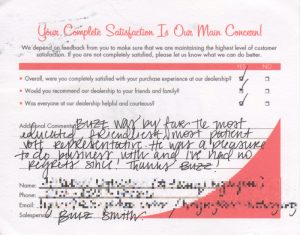 Your Complete Satisfaction Is Our Main Concern!
We depend on feedback from you to make sure that we are maintaining the highest level of customer
satisfaction. If you are not completely satisfied, please let us know what we can do better.
YES NO
• Overall, were you completely satisfied with your purchase experience at our dealership?
• Would you recommend our dealership to your friends and family?
• Was everyone at our dealership helpful and courteous?
Additional Comments: Buzz was by far the most
educated, friendliest, most patient
representative. He was a pleasure
to do business with and I've had no
regrets since! Thanks Buzz!
Name:
Phone:
Email:
Salesperson: Buzz Smith.